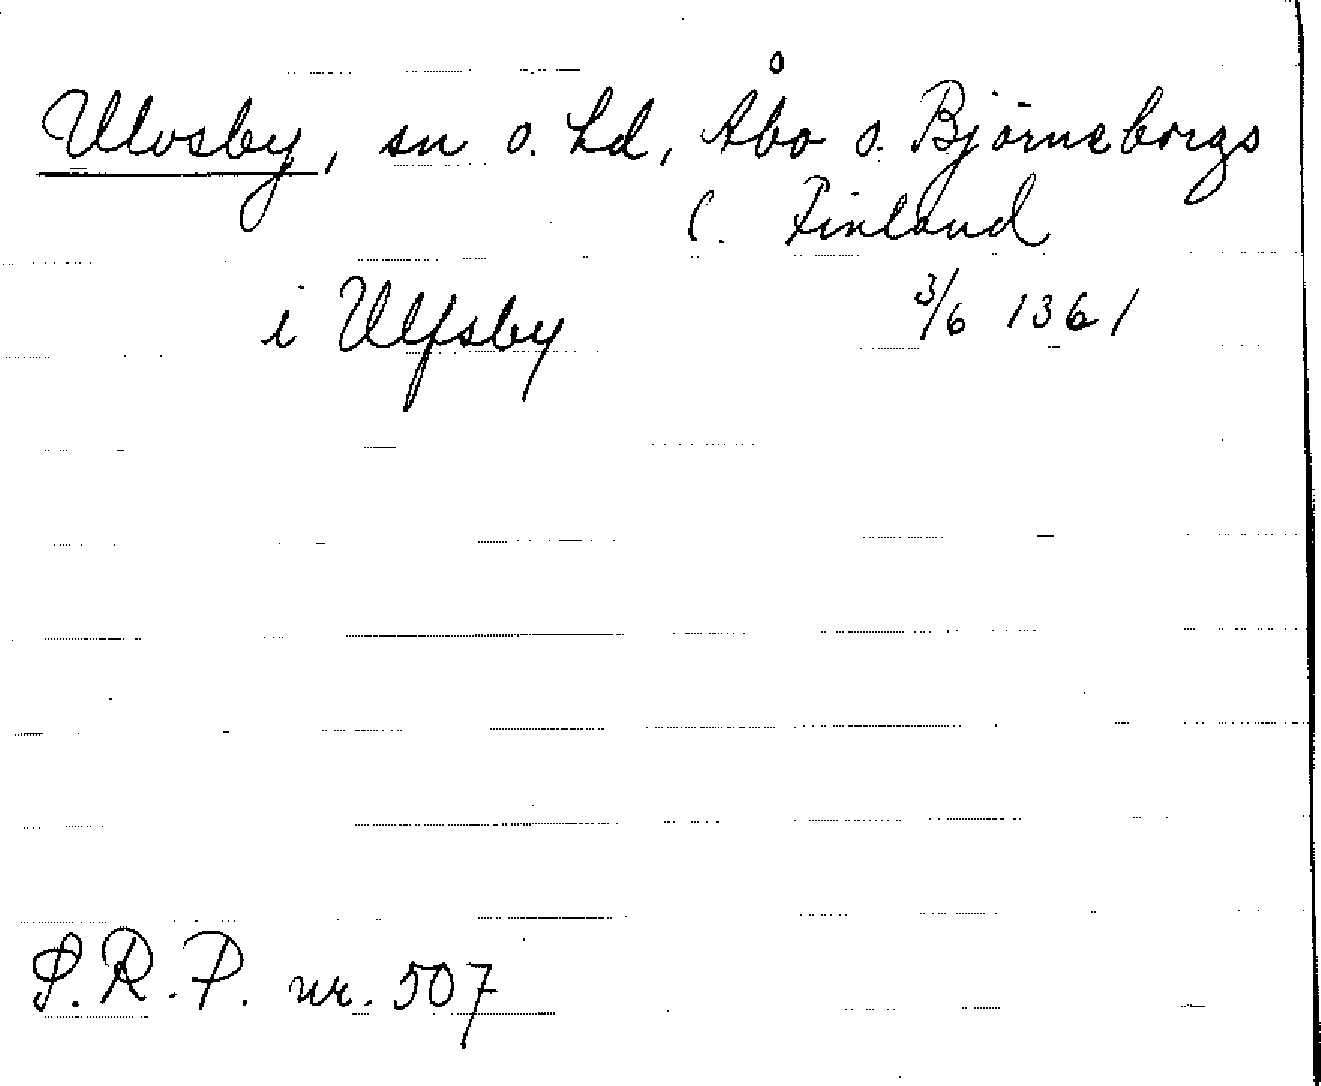 Ulvsby, sn o. hd, Åbo o. Björneborgs
l. Finland
i Ulfsby 3/6 1361
S.R.P. nr. 507